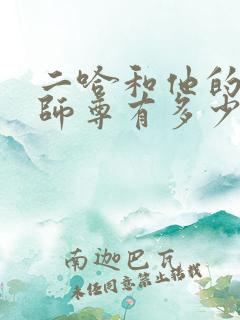 二哈和他的
師尊有多少
南迦巴瓦
未经同意禁止转载